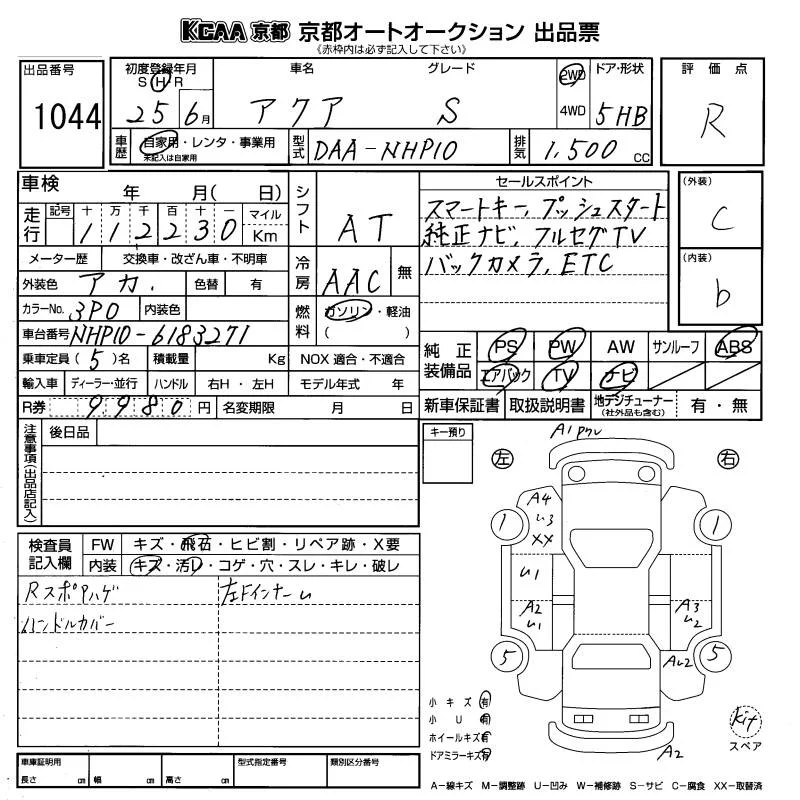 KCAA 京都 京都オートオークション 出品票
《赤枠内は必ず記入して下さい》
出品番号
1044
初度登録年月
S H
25 6月
車名
アクア
グレード
S
2WD
4WD
ドア・形状
5HB
評価点
R
車歴
自家用・レンタ・事業用
未記入は自家用
型式
DAA-NHP10
排気
1,500 cc
車検 年 月( 日)
走行
記号 十 万 千 百 十 一 マイル
112230 Km
メーター歴 交換車・改ざん車・不明車
外装色 アカ. 色替 有
カラーNo. 3P0 内装色
車台番号 NHP10-6183271
乗車定員(5)名 積載量 Kg
輸入車 ディーラー・並行 ハンドル 右H・左H
R券 9980円 名変期限 月 日
シフト
AT
冷房
AAC 無
燃料
ガソリン・軽油
( )
NOX 適合・不適合
モデル年式 年
セールスポイント
スマートキー, プッシュスタート
純正ナビ, フルセグTV
バックカメラ, ETC
(外装)
C
(内装)
b
純正装備品
PS PW AW サンルーフ ABS
エアバック TV ナビ
新車保証書 取扱説明書 地デジチューナー
(社外品も含む) 有・無
注意事項(出品店記入)
後日品
キー預り
検査員記入欄
FW キズ・飛石・ヒビ割・リペア跡・X要
内装 キズ・汚レ・コゲ・穴・スレ・キレ・破レ
Rスポアハゲ 左FインナーU
ハンドルカバー
左 右
A1
A4
U3
XX
1 1
U1
A2
U1
A3
U2
5 5
AU2
A2
小キズ 有
小U 有
ホイールキズ 有
ドアミラーキズ 有
kit
スペア
車庫証明用
長さ cm 幅 cm 高さ cm
型式指定番号
類別区分番号
A-線キズ M-調整跡 U-凹み W-補修跡 S-サビ C-腐食 XX-取替済